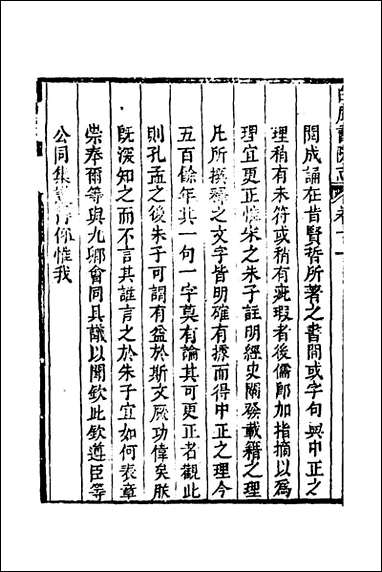 閱成誦在昔賢哲所著之書間或字句與中正之
理稍有未符或稍有疵瑕者後儒郎加指摘以為
理宜更正惟宋之朱子註明經史闡發載籍之理
凡所撰釋之文字皆明確有據而得中正之理今
五百餘年其一句一字莫有論其可更正者觀此
則孔孟之後朱子可謂有益於斯文厥功偉矣朕
既深知之而不言其誰言之於朱子宜如何表章
崇奉爾等與九卿會同具議以聞欽此欽遵臣等
公同集議得你惟我
卷十一